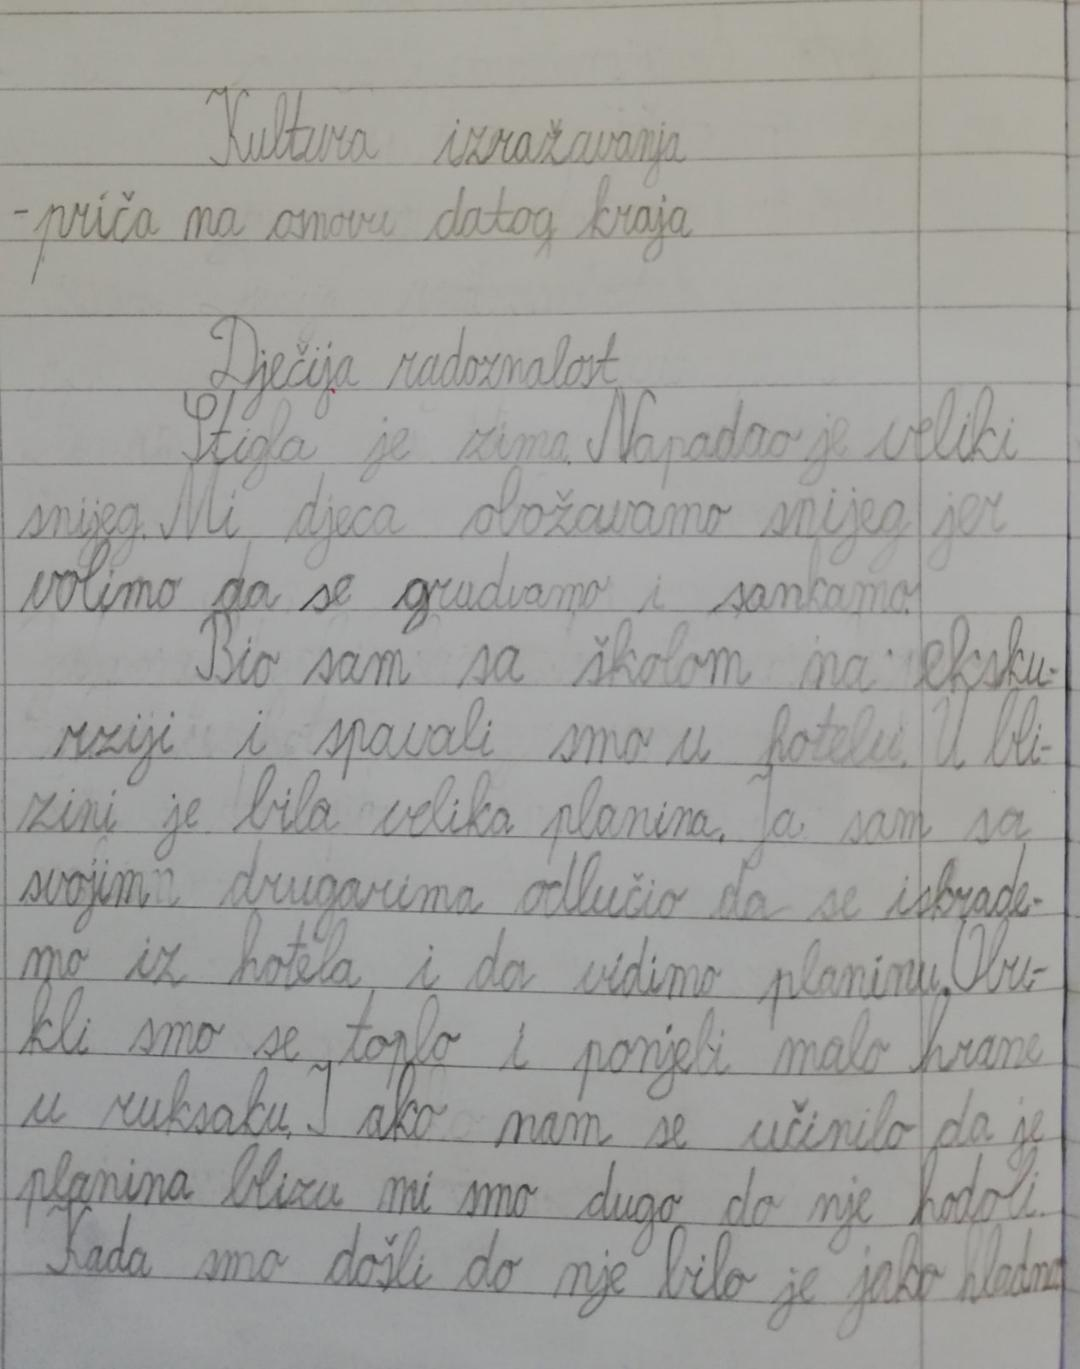 Kultura izražavanja
-priča na osnovu datog kraja
Dječija radoznalost
Stigla je zima. Napadao je veliki
snijeg. Mi djeca obožavamo snijeg jer
volimo da se grudvamo i sankamo.
Bio sam sa školom na eksku-
rziji i spavali smo u hotelu. U bli-
zini je bila velika planina. Ja sam sa
svojim drugarima odlučio da se iskrade-
mo iz hotela i da vidimo planinu. Obu-
kli smo se toplo i ponjeli malo hrane
u ruksaku. I ako nam se učinilo da je
planina blizu mi smo dugo do nje hodali.
Kada smo došli do nje bilo je jako hladno